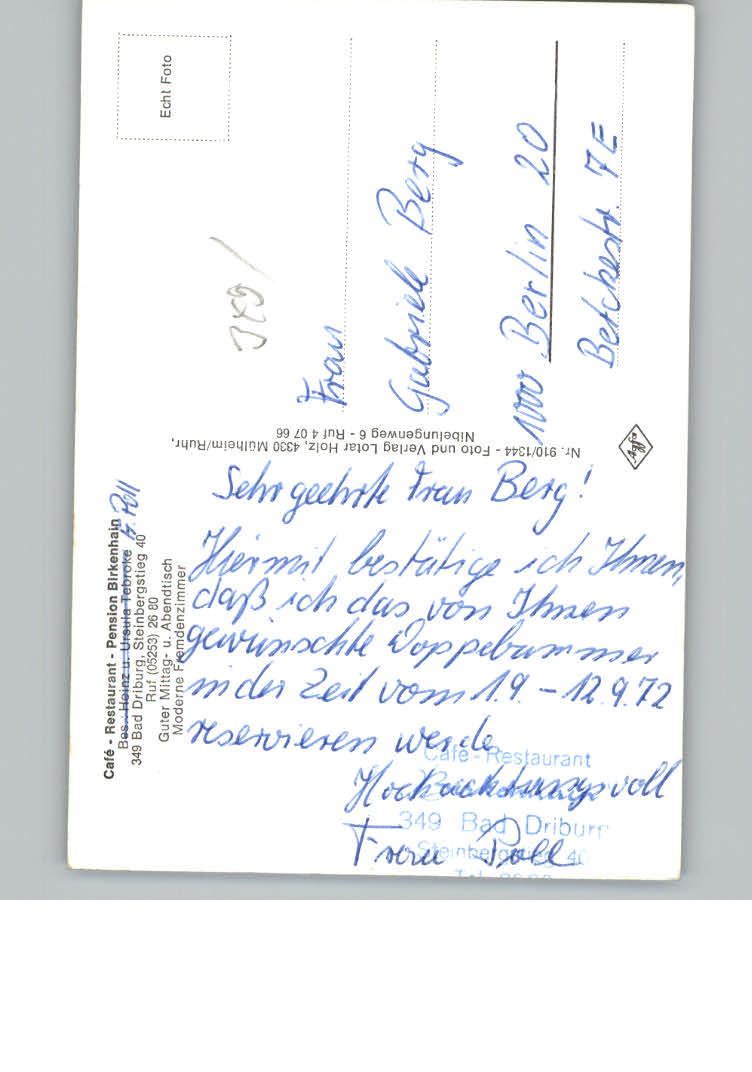 Café - Restaurant - Pension Birkenhain
Bes.: Heinz u. Ursula Tebroke Poll
349 Bad Driburg, Steinbergstieg 40
Ruf (05253) 26 80
Guter Mittag- u. Abendtisch
Moderne Fremdenzimmer
Sehr geehrte Frau Berg!
Hiermit bestätige ich Ihnen,
daß ich das von Ihnen
gewünschte Doppelzimmer
in der Zeit vom 1.9. - 12.9.72
reservieren werde
Hochachtungsvoll
Frau Poll
Café - Restaurant
349 Bad Driburg
Steinbergstieg 40
Tel.
Nr. 910/1344 - Foto und Verlag Lotar Holz, 4330 Mülheim/Ruhr,
Nibelungenweg 6 - Ruf 4 07 66
Agfa
Echt Foto
Frau
Gabriele Berg
1000 Berlin 20
7E